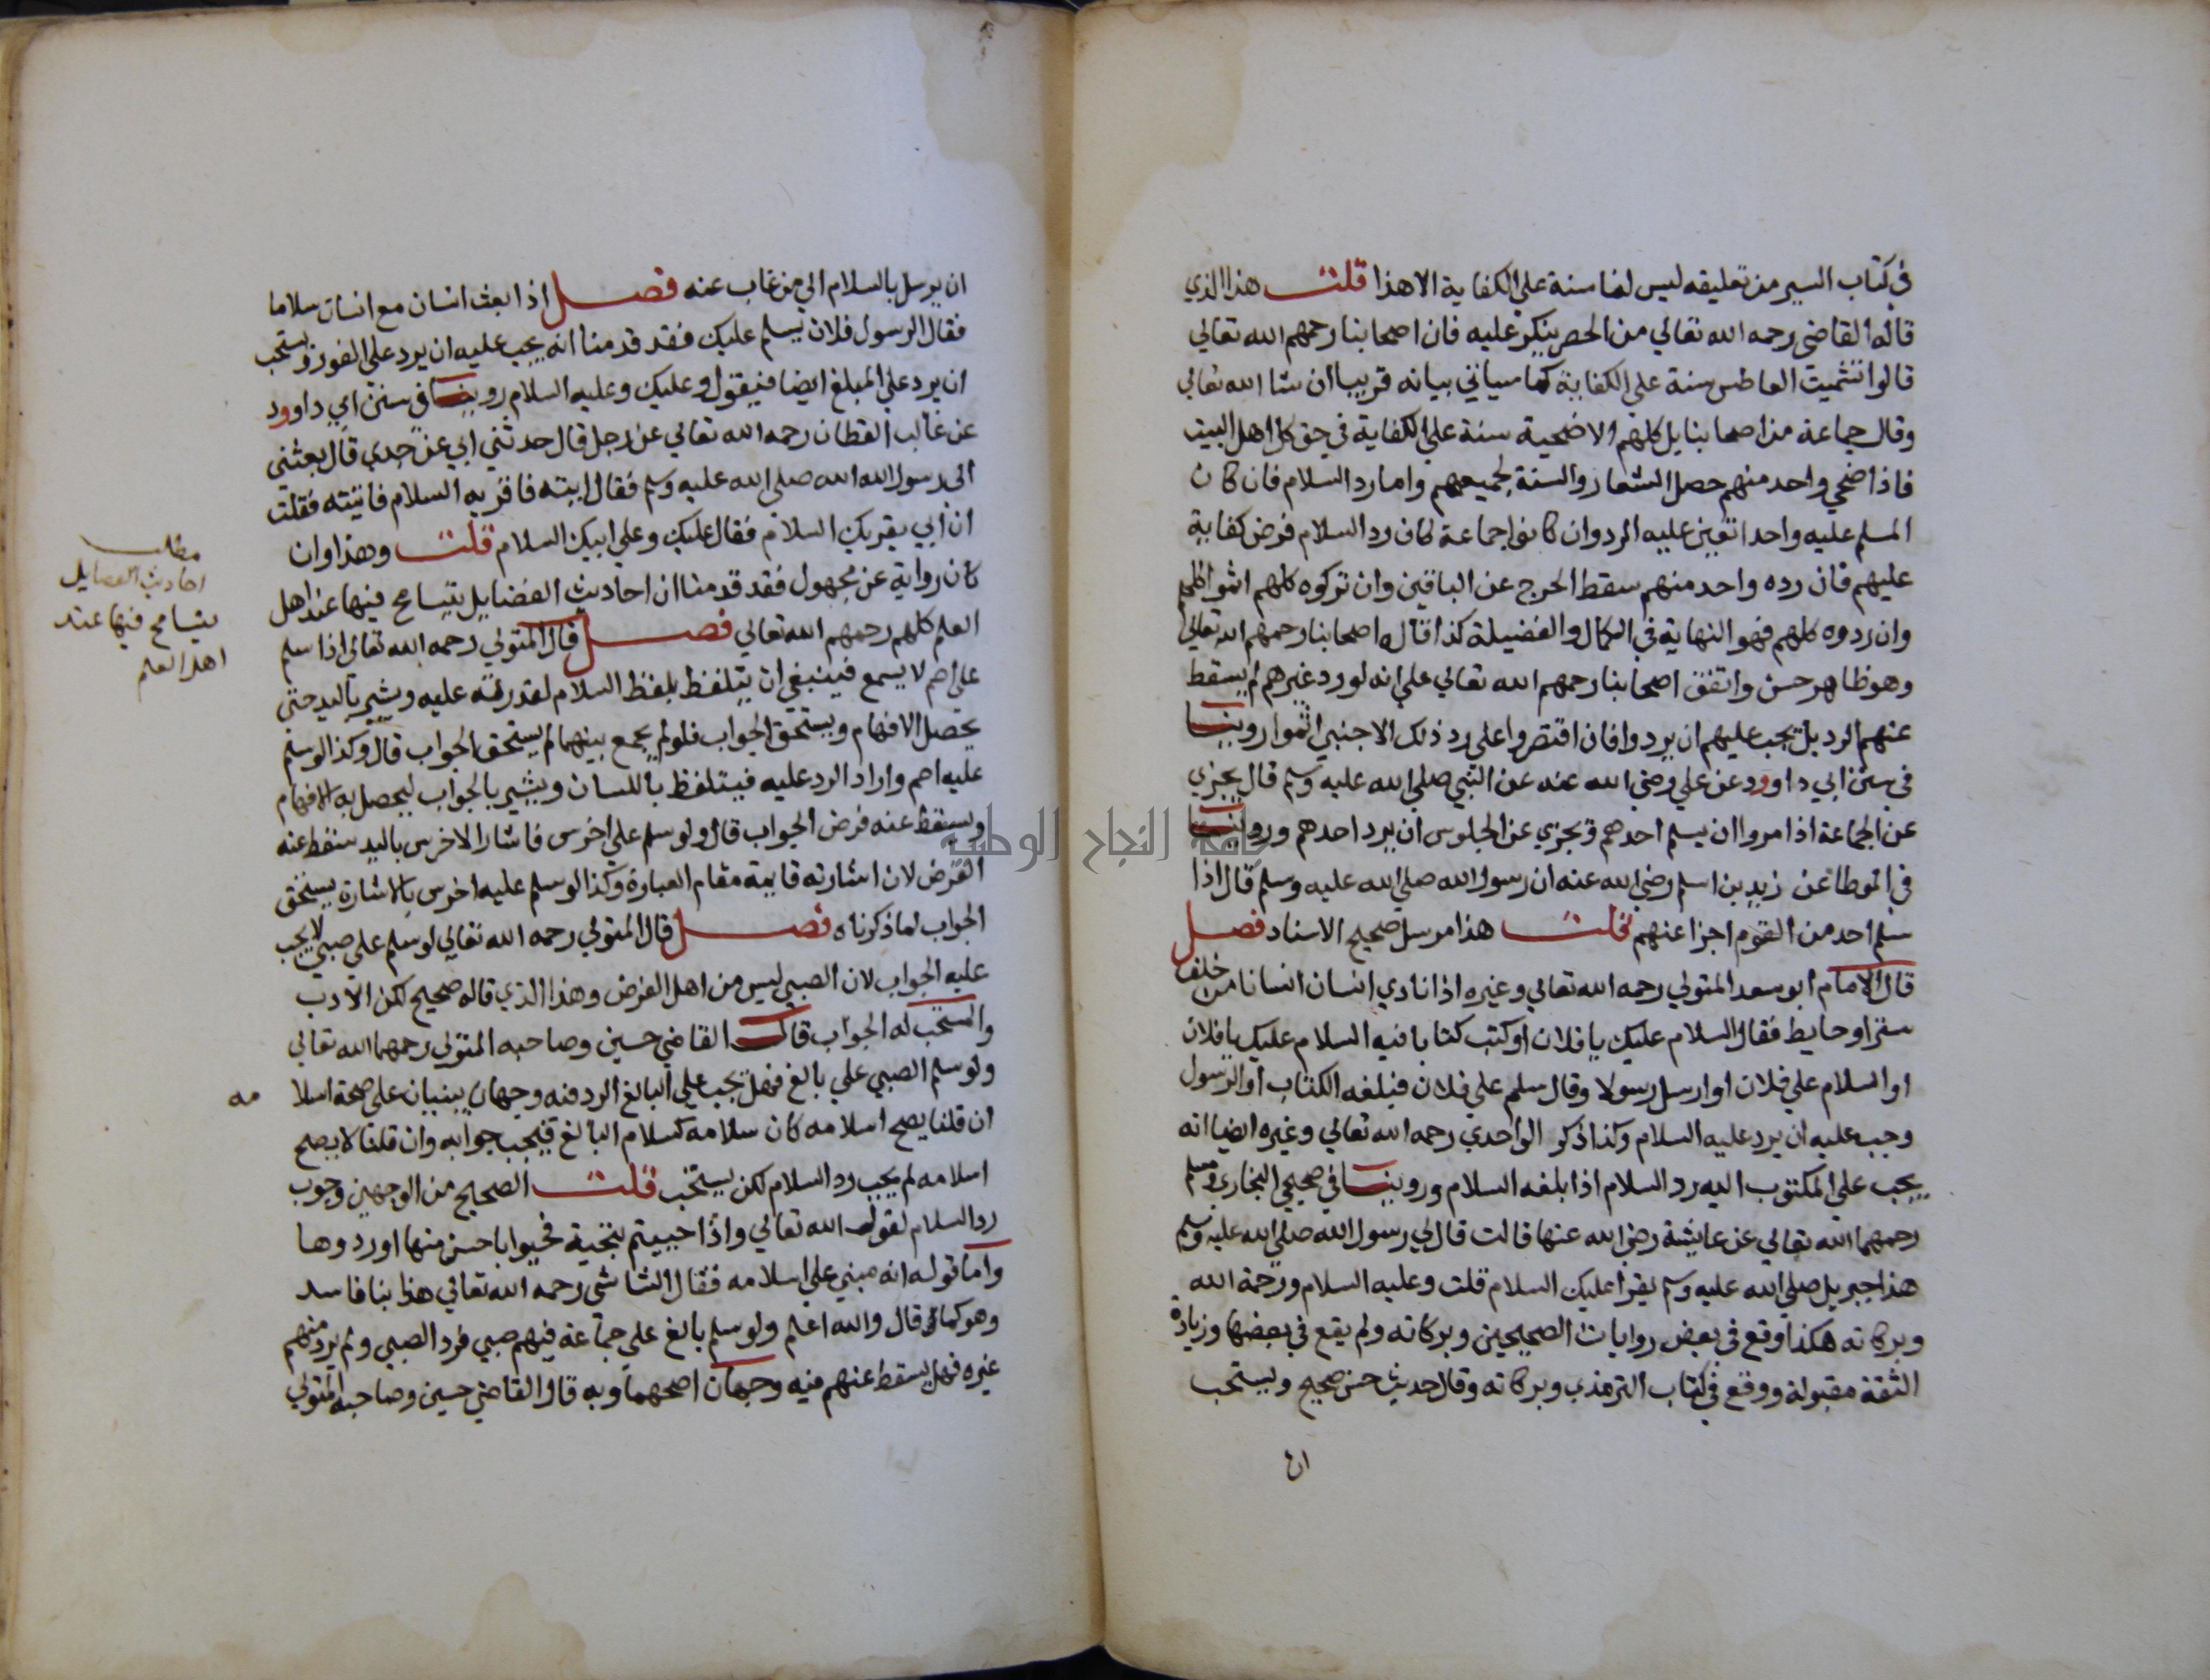 في كتاب السير من تعليقه ليس لنا سنة علي الكفاية الا هذا قلت هذا الذي
قاله القاضي رحمه الله تعالي من الحصر ينكر عليه فان اصحابنا رحمهم الله تعالي
قالوا تشميت العاطس سنة علي الكفاية كما سياتي بيانه قريبا ان شا الله تعالي
وقال جماعة من اصحابنا بل كلهم الاضحية سنة علي الكفاية في حق كل اهل البيت
فاذا ضحي واحد منهم حصل الشعار والسنة لجميعهم واما رد السلام فان كان
المسلم عليه واحدا تعين عليه الرد وان كانوا جماعة كان رد السلام فرض كفاية
عليهم فان رده واحد منهم سقط الحرج عن الباقين وان تركوه كلهم اثموا كلهم
وان ردوه كلهم فهو النهاية في الكمال والفضيلة كذا قاله اصحابنا رحمهم الله تعالي
وهو ظاهر حسن واتفق اصحابنا رحمهم الله تعالي علي انه لو رد غيرهم لم يسقط
عنهم الرد بل يجب عليهم ان يردوا فان اقتصروا علي رد ذلك الاجنبي اثموا روينا
في سنن ابي داوود عن علي رضي الله عنه عن النبي صلي الله عليه وسلم قال يجزي
عن الجماعة اذا مروا ان يسلم احدهم ويجزي عن الجلوس ان يرد احدهم وروينا
في الموطا عن زيد بن اسلم رضي الله عنه ان رسول الله صلي الله عليه وسلم قال اذا
سلم احد من القوم اجزا عنهم قلت هذا مرسل صحيح الاسناد فصل
قال الامام ابو سعد المتولي رحمه الله تعالي وغيره اذا نادي انسان انسانا من خلف
ستر او حايط فقال السلام عليك يا فلان او كتب كتابا فيه السلام عليك يا فلان
او السلام علي فلان او ارسل رسولا وقال سلم علي فلان فبلغه الكتاب او الرسول
وجب عليه ان يرد عليه السلام وكذا ذكر الواحدي رحمه الله تعالي وغيره ايضا انه
يجب علي المكتوب اليه رد السلام اذا بلغه السلام وروينا في صحيحي البخاري ومسلم
رحمهما الله تعالي عن عايشة رضي الله عنها قالت قال لي رسول الله صلي الله عليه وسلم
هذا جبريل صلي الله عليه وسلم يقرا عليك السلام قلت وعليه السلام ورحمة الله
وبركاته هكذا وقع في بعض روايات الصحيحين وبركاته ولم يقع في بعضها وزيادة
الثقة مقبولة ووقع في كتاب الترمذي وبركاته وقال حديث حسن صحيح ويستحب
ان
ان يرسل بالسلام الي من غاب عنه فصل اذا بعث انسان مع انسان سلاما
فقال الرسول فلان يسلم عليك فقد قدمنا انه يجب عليه ان يرد علي الفور ويستحب
ان يرد علي المبلغ ايضا فيقول وعليك وعليه السلام روينا في سنن ابي داوود
عن غالب القطان رحمه الله تعالي عن رجل قال حدثني ابي عن جدي قال بعثني
الي رسول الله الله صلي الله عليه وسلم فقال ايته فاقريه السلام فاتيته فقلت
ان ابي يقريك السلام فقال عليك وعلي ابيك السلام قلت وهذا وان
كان رواية عن مجهول فقد قدمنا ان احاديث الفضايل يتسامح فيها عند اهل
العلم كلهم رحمهم الله تعالي فصل قال المتولي رحمه الله تعالي اذا سلم
علي اصم لا يسمع فينبغي ان يتلفظ بلفظ السلام لقدرته عليه ويشير باليد حتي
يحصل الافهام ويستحق الجواب فلو لم يجمع بينهما لم يستحق الجواب قال وكذا لو سلم
عليه اصم واراد الرد عليه فيتلفظ باللسان ويشير بالجواب ليحصل به الافهام
ويسقط عنه فرض الجواب قال ولو سلم علي اخرس فاشار الاخرس باليد سقط عنه
الفرض لان اشارته قايمة مقام العبارة وكذا لو سلم عليه اخرس بالاشارة يستحق
الجواب لما ذكرناه فصل قال المتولي رحمه الله تعالي لو سلم علي صبي لا يجب
عليه الجواب لان الصبي ليس من اهل الفرض وهذا الذي قاله صحيح لكن الادب
والمستحب له الجواب قال القاضي حسين وصاحبه المتولي رحمهما الله تعالي
ولو سلم الصبي علي بالغ فهل يجب علي البالغ الرد فيه وجهان يبنيان علي صحة اسلا مه
ان قلنا يصح اسلامه كان سلامه كسلام البالغ فيجب جوابه وان قلنا لا يصح
اسلامه لم يجب رد السلام لكن يستحب قلت الصحيح من الوجهين وجوب
رد السلام لقوله الله تعالي واذا حييتم بتحية فحيوا باحسن منها او ردوها
واما قوله انه مبني علي اسلامه فقال الشاشي رحمه الله تعالي هذا بنا فاسد
وهو كما قال والله اعلم ولو سلم بالغ علي جماعة فيهم صبي فرد الصبي ولم يرد منهم
غيره فهل يسقط عنهم فيه وجهان اصحهما وبه قال القاضي حسين وصاحبه المتولي
مطلب
احاديث الفضايل
يتسامح فيها عند
اهل العلم
جامعة النجاح الوطنية